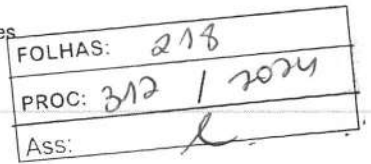 es
FOLHAS: 218
PROC: 312 / 2024
Ass: